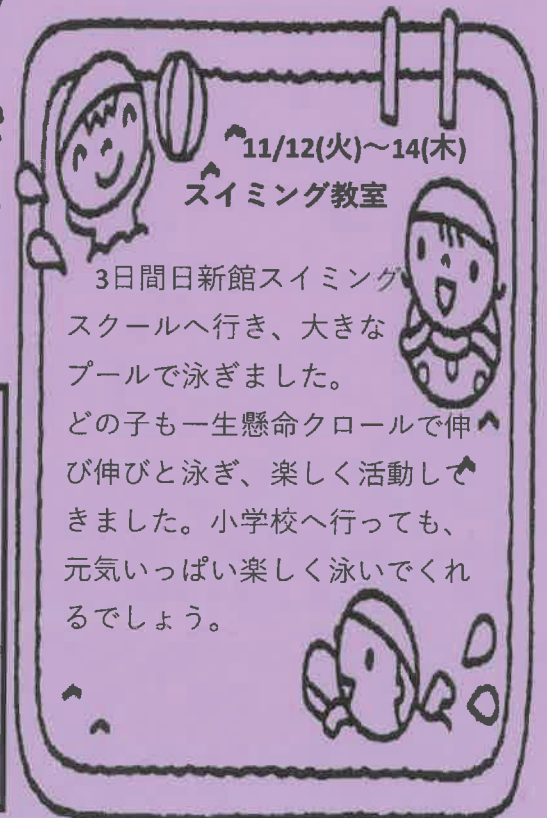 11/12(火)～14(木)
スイミング教室
3日間日新館スイミング
スクールへ行き、大きな
プールで泳ぎました。
どの子も一生懸命クロールで伸
び伸びと泳ぎ、楽しく活動して
きました。小学校へ行っても、
元気いっぱい楽しく泳いでくれ
るでしょう。